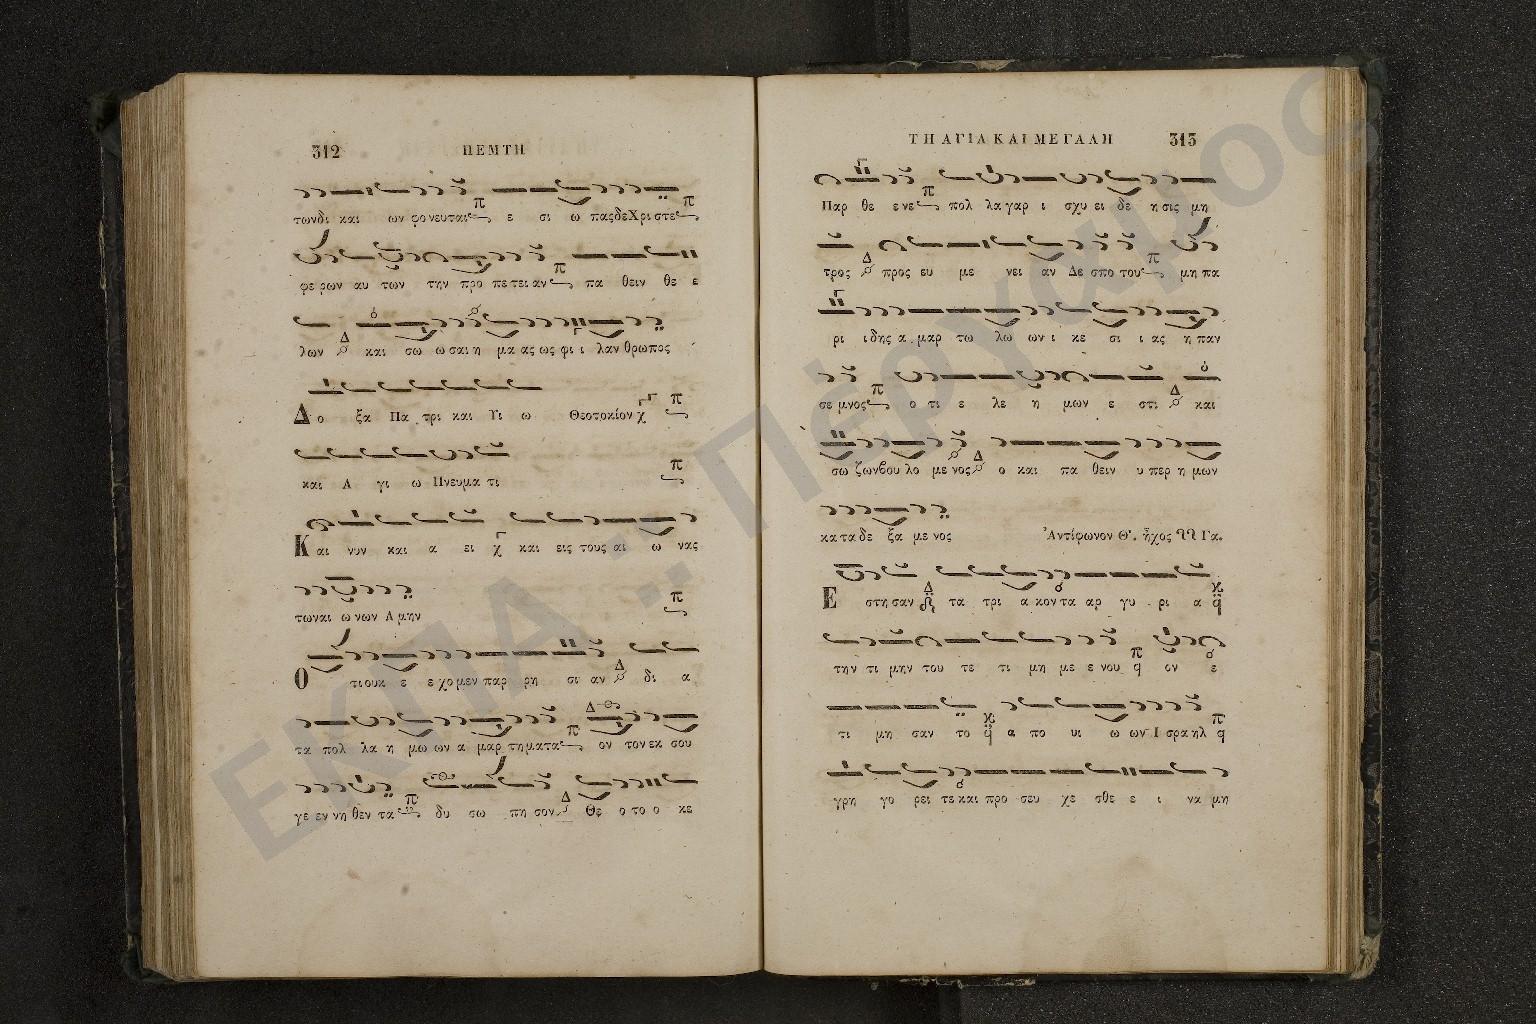 312 ΠΕΜΤΗ
τωνδι και ων φονευται ε σι ω παςδεΧριστε
φερων αυ των την προ πετειαν πα θειν θε ε
λων και σω ωσαιη μα ας ως φι ι λανθρωπος
Δο ξα Πα τρι και Υι ω Θεοτοκίον
και Α γι ω Πνευμα τι
Και νυν και α ει και εις τους αι ω νας
τωναι ω νων Αμην
Οτιουκ ε εχομεν παρ ρη σι αν δι α
τα πολ λα η μω ων α μαρ τηματα ον τονεκ σου
γε εν νη θεν τα δυ σω πη σον Θε ο το ο κε
ΤΗ ΑΓΙΑ ΚΑΙ ΜΕΓΑΛΗ 313
Παρ θε ε νε πολ λα γαρ ι σχυ ει δε η σις μη
τρος προς ευ με νει αν Δε σπο του μη πα
ρι ιδης α μαρ τω λω ων ι κε σι ι ας η παν
σε μνος ο τι ε λε η μων ε στι και
σω ζωνβου λο με νος ο και πα θειν υ περ η μων
κα τα δε ξα με νος Ἀντίφωνον Θ'. ἦχος Γα.
Ε στη σαν τα τρι α κον τα αρ γυ ρι α
την τι μην του τε τι μη με ε νου ον ε
τι μη σαν το α πο υι ω ων Ισραηλ
γρη γο ρει τε και προ σευ χε σθε ε ι να μη
ΕΚΠΑ :: Πέργαμος